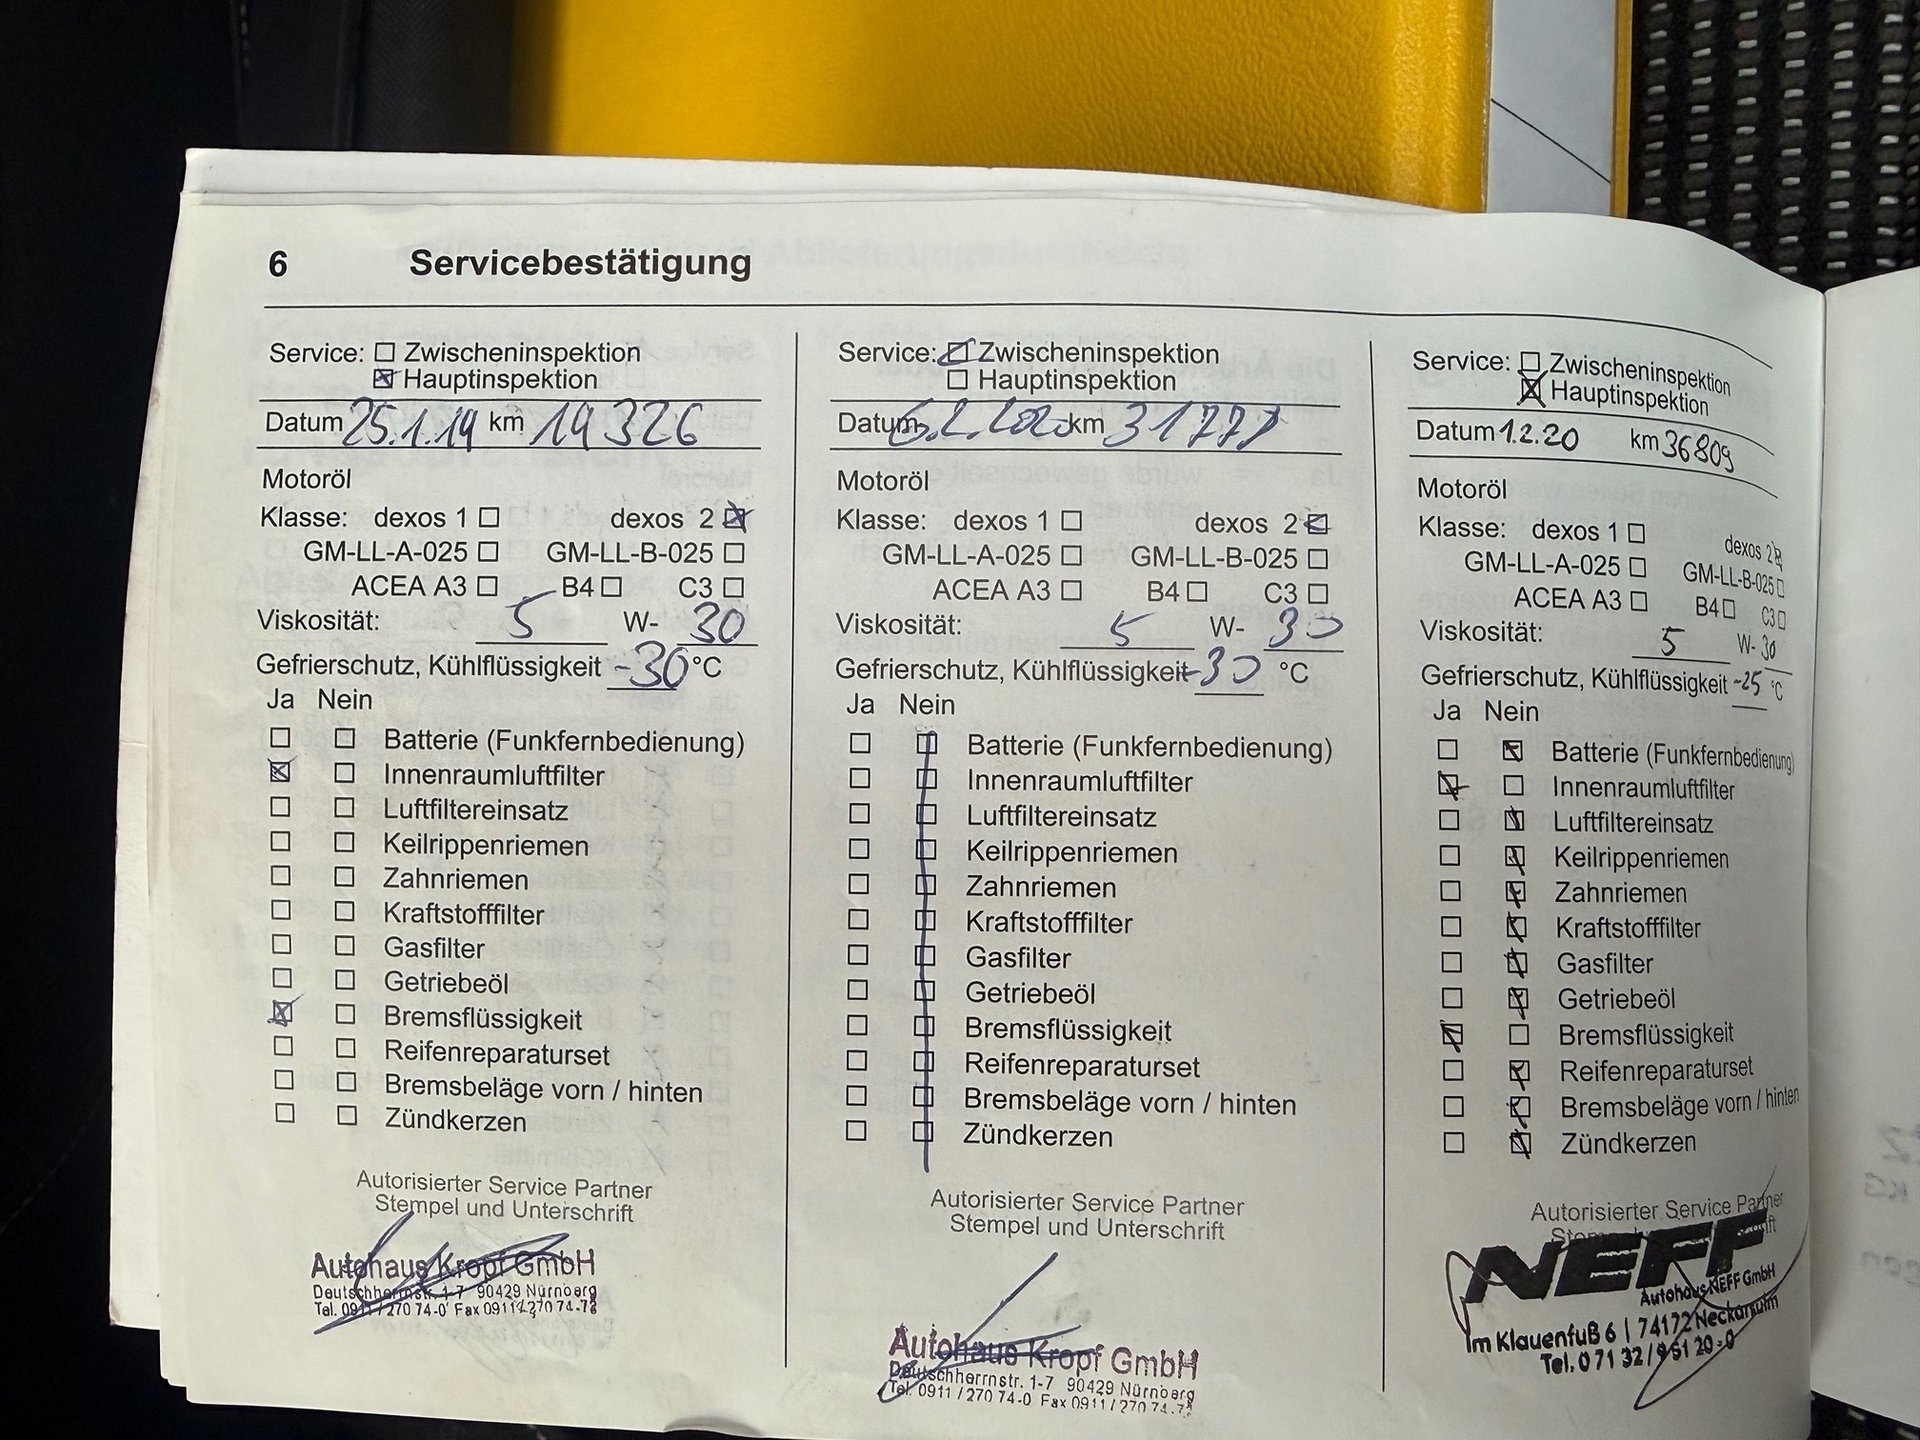 6 Servicebestätigung
Service: Zwischeninspektion
Hauptinspektion
Datum 25.1.19 km 19 326
Motoröl
Klasse: dexos 1 dexos 2
GM-LL-A-025 GM-LL-B-025
ACEA A3 B4 C3
Viskosität: 5 W- 30
Gefrierschutz, Kühlflüssigkeit -30 °C
Ja Nein
Batterie (Funkfernbedienung)
Innenraumluftfilter
Luftfiltereinsatz
Keilrippenriemen
Zahnriemen
Kraftstofffilter
Gasfilter
Getriebeöl
Bremsflüssigkeit
Reifenreparaturset
Bremsbeläge vorn / hinten
Zündkerzen
Autorisierter Service Partner
Stempel und Unterschrift
Autohaus Kropf GmbH
Deutschherrnstr. 1-7 90429 Nürnberg
Tel. 0911 / 270 74-0 Fax 0911/270 74-72
Service: Zwischeninspektion
Hauptinspektion
Datum 6.2.2020 km 31777
Motoröl
Klasse: dexos 1 dexos 2
GM-LL-A-025 GM-LL-B-025
ACEA A3 B4 C3
Viskosität: 5 W- 30
Gefrierschutz, Kühlflüssigkeit -30 °C
Ja Nein
Batterie (Funkfernbedienung)
Innenraumluftfilter
Luftfiltereinsatz
Keilrippenriemen
Zahnriemen
Kraftstofffilter
Gasfilter
Getriebeöl
Bremsflüssigkeit
Reifenreparaturset
Bremsbeläge vorn / hinten
Zündkerzen
Autorisierter Service Partner
Stempel und Unterschrift
Autohaus Kropf GmbH
Deutschherrnstr. 1-7 90429 Nürnberg
Tel. 0911 / 270 74-0 Fax 0911/270 74-72
Service: Zwischeninspektion
Hauptinspektion
Datum 1.2.20 km 36809
Motoröl
Klasse: dexos 1 dexos 2
GM-LL-A-025 GM-LL-B-025
ACEA A3 B4 C3
Viskosität: 5 W- 30
Gefrierschutz, Kühlflüssigkeit -25 °C
Ja Nein
Batterie (Funkfernbedienung)
Innenraumluftfilter
Luftfiltereinsatz
Keilrippenriemen
Zahnriemen
Kraftstofffilter
Gasfilter
Getriebeöl
Bremsflüssigkeit
Reifenreparaturset
Bremsbeläge vorn / hinten
Zündkerzen
Autorisierter Service Partner
NEFF
Autohaus NEFF GmbH
Im Klauenfuß 6 | 74172 Neckarsulm
Tel. 0 71 32 / 9 51 20 - 0